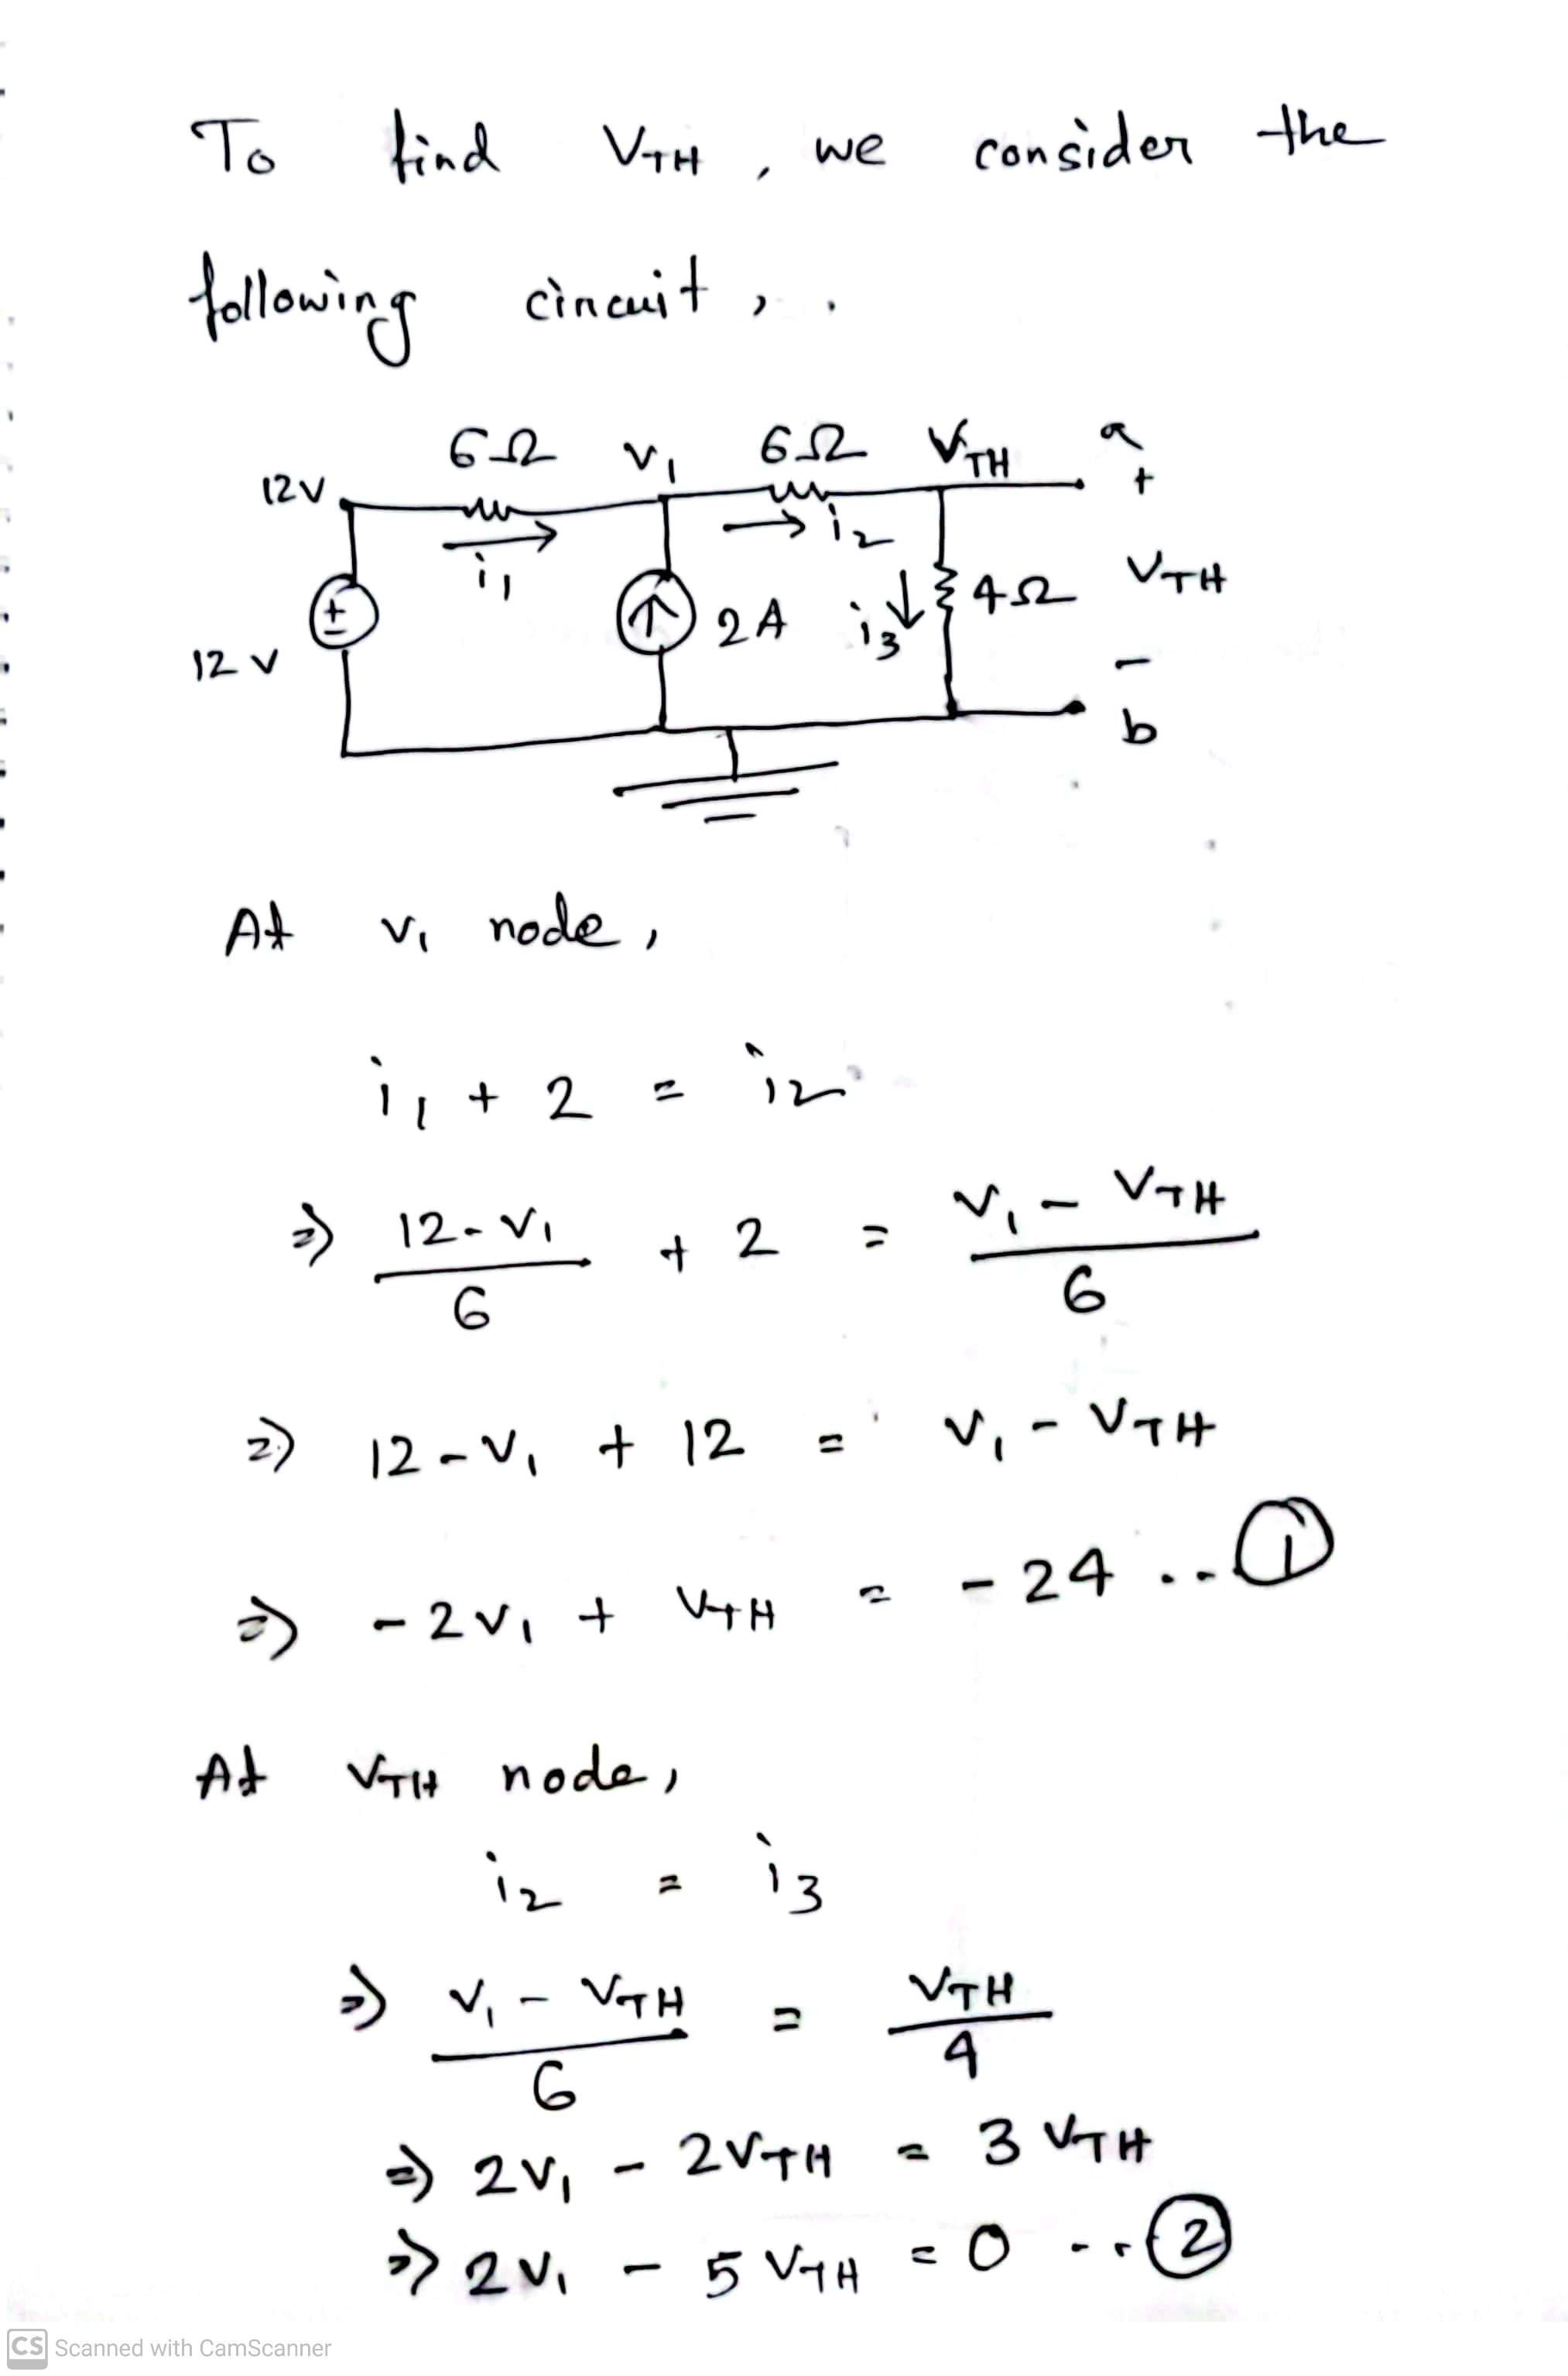 To find VTH, we consider the
following circuit,.
6Ω V1 6Ω VTH a
12V +
i1 i2
+ - 2A i3 4Ω VTH
12 V -
b
At V1 node,
i1 + 2 = i2
⇒ (12-V1)/6 + 2 = (V1 - VTH)/6
⇒ 12-V1 + 12 = V1 - VTH
⇒ -2V1 + VTH = -24 ..①
At VTH node,
i2 = i3
⇒ (V1 - VTH)/6 = VTH/4
⇒ 2V1 - 2VTH = 3VTH
⇒ 2V1 - 5VTH = 0 ..②
CS Scanned with CamScanner